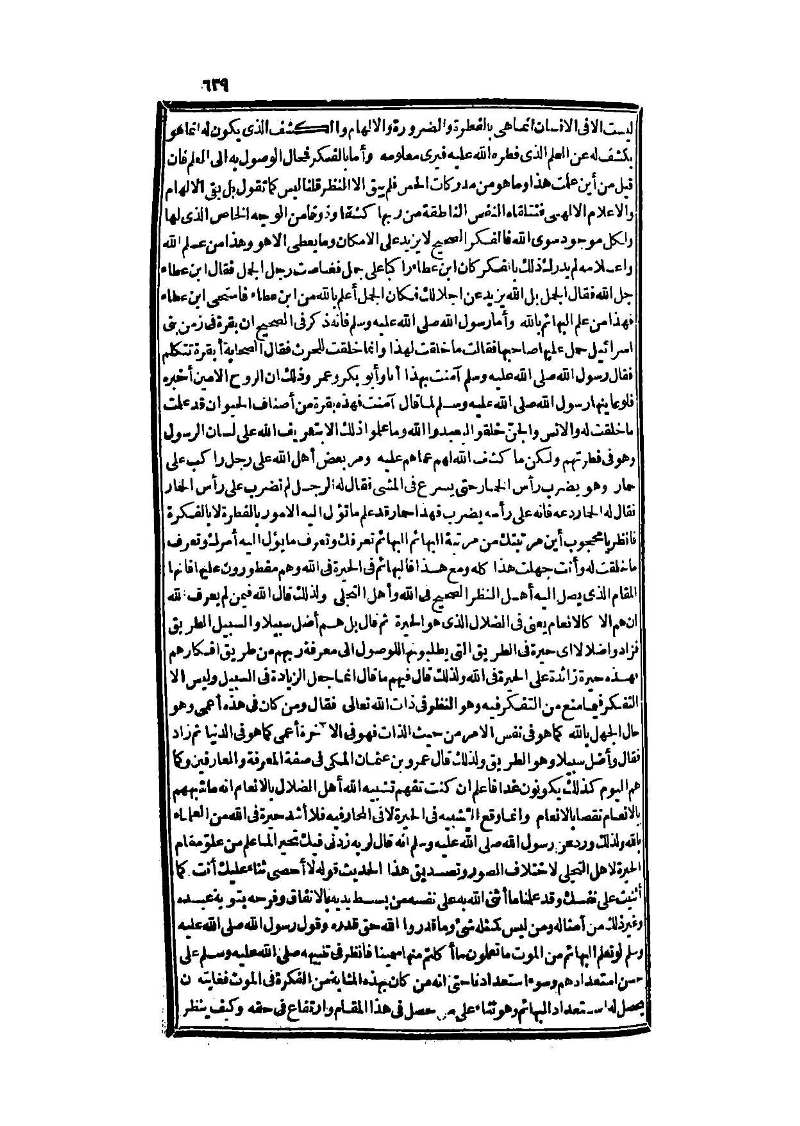 ٦٣٩
ليست الا فى الانسان انما هى بالفطرة والضرورة والالهام والكشف الذى يكون له انما هو
يكشف له عن العلم الذى فطره الله عليه فيرى معلومه وأما بالفكر فمحال الوصول به الى العلم فان
قيل من أين علمت هذا وما هو من مدركات الحس فلم يبق الا النظر قلنا ليس كما تقول بل بقى الالهام
والاعلام الالهى فتتلقاه النفس الناطقة من ربها كشفا وذوقا من الوجه الخاص الذى لها
ولكل موجود سوى الله فالفكر الصحيح لا يزيد على الامكان وما يعطى الا هو وهذا من علم الله
واعلامه لم يدرك ذلك بالفكر كان ابن عطاء راكبا على جمل فغاصت رجل الجمل فقال ابن عطاء
جل الله فقال الجمل بل الله يزيد عن اجلالك فكان الجمل أعلم بالله من ابن عطاء فاستحى ابن عطاء
فهذا من علم البهائم بالله وأما رسول الله صلى الله عليه وسلم فانه ذكر فى الصحيح ان بقرة فى زمن بنى
اسرائيل حمل عليها صاحبها فقالت ما خلقت لهذا وانما خلقت للحرث فقال الصحابة أبقرة تتكلم
فقال رسول الله صلى الله عليه وسلم آمنت بهذا أنا وأبو بكر وعمر وذلك ان الروح الامين أخبره
فلو عاينها رسول الله صلى الله عليه وسلم لما قال آمنت فهذه بقرة من أصناف الحيوان قد علمت
ما خلقت له والانس والجن خلقوا ليعبدوا الله وما علموا ذلك الا بتعريف الله على لسان الرسول
وهو فى فطرتهم ولكن ما كشف الله لهم عما هم عليه ومر بعض أهل الله على رجل راكب على
حمار وهو يضرب رأس الحمار حتى يسرع فى المشى فقال له الرجل لم تضرب على رأس الحمار
فقال له الحمار دعه فانه على رأسه يضرب فهذا حمار قد علم ما تؤل اليه الامور بالفطرة لا بالفكرة
فانظر يا محجوب أين مرتبتك من مرتبة البهائم البهائم تعرفك وتعرف ما يؤل اليه أمرك وتعرف
ما خلقت له وأنت جهلت هذا كله ومع هذا فالبهائم فى الحيرة فى الله وهم مفطورون عليها فانها
المقام الذى يصل اليه أهل النظر الصحيح فى الله وأهل التجلى ولذلك قال الله فيمن لم يعرف الله
ان هم الا كالانعام يعنى فى الضلال الذى هو الحيرة ثم قال بل هم أضل سبيلا والسبيل الطريق
فزادوا ضلالا اى حيرة فى الطريق التى يطلبونها للوصول الى معرفة ربهم من طريق افكارهم
فهذه حيرة زائدة على الحيرة فى الله ولذلك قال فيهم ما قال انما جعل الزيادة فى السبيل وليس الا
التفكر فيما منع من التفكر فيه وهو النظر فى ذات الله تعالى فقال ومن كان فى هذه أعمى وهو
حال الجهل بالله كما هو فى نفس الامر من حيث الذات فهو فى الآخرة أعمى كما هو فى الدنيا ثم زاد
فقال وأضل سبيلا وهو الطريق ولذلك قال عمرو بن عثمان المكى فى صفة المعرفة والعارفين وكما
هم اليوم كذلك يكونون غدا فاعلم ان كنت تفهم تشبيه الله أهل الضلال بالانعام انه ما شبههم
بالانعام نقصا بالانعام وانما وقع التشبيه فى الحيرة لا فى المحار فيه فلا أشد حيرة فى الله من العلماء
بالله ولذلك ورد عن رسول الله صلى الله عليه وسلم أنه قال لربه زدنى فيك تحيرا لما علم من علو مقام
الحيرة لاهل التجلى لاختلاف الصور وتصديق هذا الحديث قوله لا أحصى ثناء عليك أنت كما
أثنيت على نفسك وقد علمنا ما أثنى الله به على نفسه من بسط يديه بالانفاق وفرحه بتوبة عبده
وغير ذلك من أمثاله ومن ليس كمثله شئ وما قدروا الله حق قدره وقول رسول الله صلى الله عليه
وسلم لو تعلم البهائم من الموت ما تعلمون ما أكلتم منها سمينا فانظر فى تنبيهه صلى الله عليه وسلم على
حسن استعدادهم وسوء استعدادنا حتى انه من كان بهذه المثابة من الفكرة فى الموت فغايته ن
يحصل له استعداد البهائم وهو ثناء على من حصل فى هذا المقام وارتفاع فى حقه وكيف ينظر